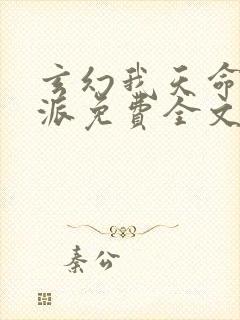 玄幻我天命
派免費全文
秦公